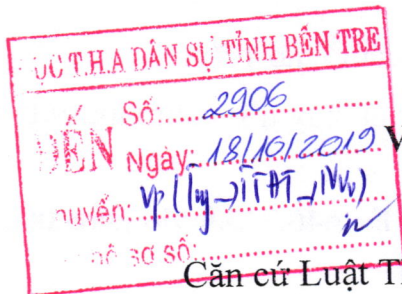 ỤC T.H.A DÂN SỰ TỈNH BẾN TRE
ĐẾN
Số: 2906
Ngày: 18/10/2019
V
huyển: VP
hồ sơ số:
Căn cứ Luật T